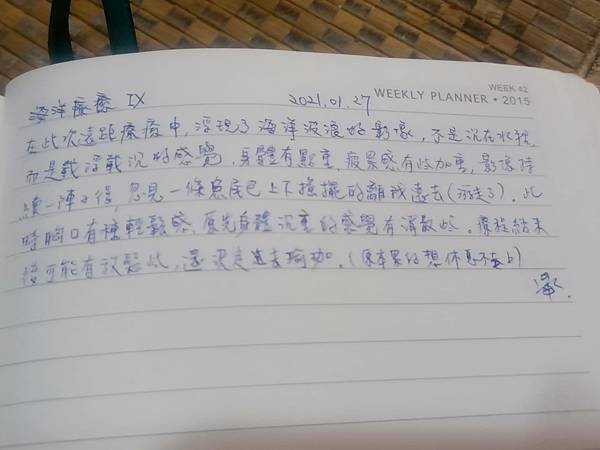 WEEK 42
WEEKLY PLANNER • 2015
海洋療癒 IX 2021.01.27
在此次遠距療癒中，浮現了海洋波浪的影像，不是沉在水裡，
而是載浮載沉的感覺，身體有點重，疲累感有些加重，影像持
續一陣子後，忽見一條魚尾巴上下搖擺的離我遠去(游走了)。此
時胸口有種輕鬆感，原先身體沉重的感覺有消散些。療程結束
後可能有放鬆些，還決定進去瑜珈。(原本累的想休息不去上)